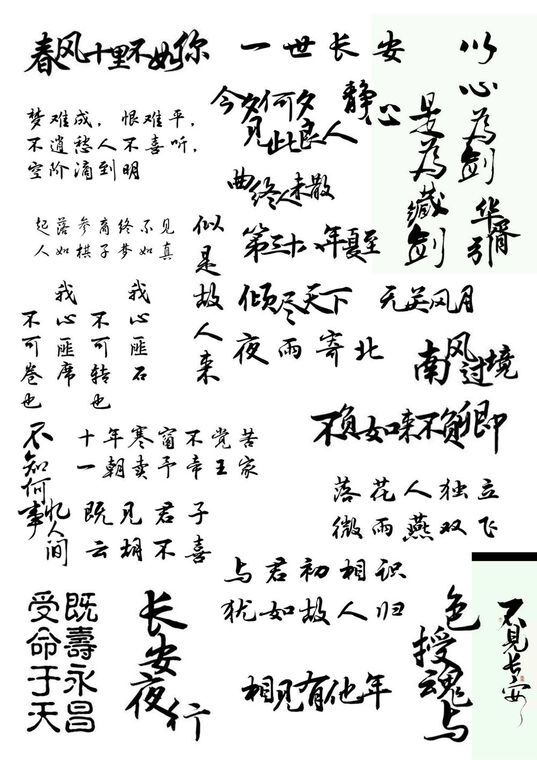 春风十里不如你
一世长安
以心为剑
是为藏剑
华胥引
今夕何夕
见此良人
静心
梦难成，恨难平，
不道愁人不喜听，
空阶滴到明
曲终人未散
起落参商终不见
人如棋子梦如真
似是故人来
第三十八年夏至
倾尽天下
无关风月
我心匪石
不可转也
我心匪席
不可卷也
夜雨寄北
南风过境
不负如来不负卿
不知何事忆人间
十年寒窗不觉苦
一朝卖予帝王家
既见君子
云胡不喜
落花人独立
微雨燕双飞
与君初相识
犹如故人归
受命于天
既壽永昌
长安夜行
相见有他年
色授魂与
不见长安